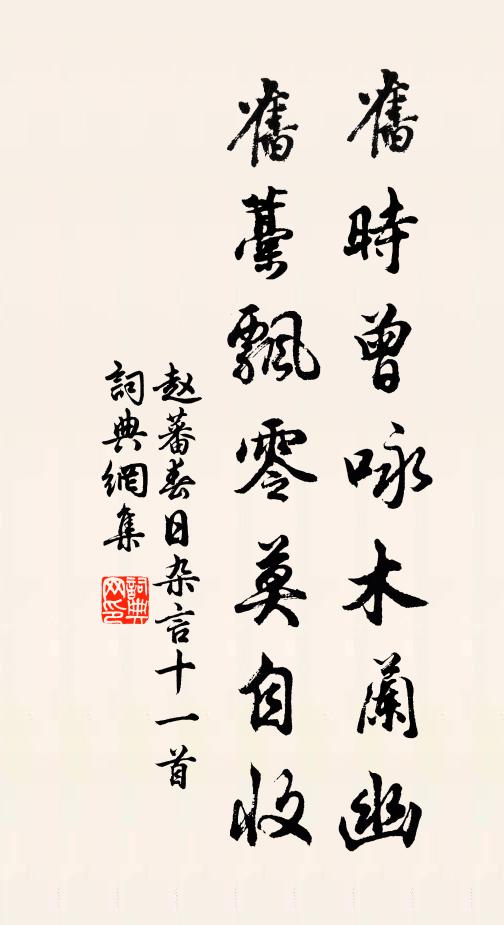 舊時曾咏木蘭幽
舊藁飄零莫自收
赵蕃春日杂言十一首
詞典網集
詞典網印